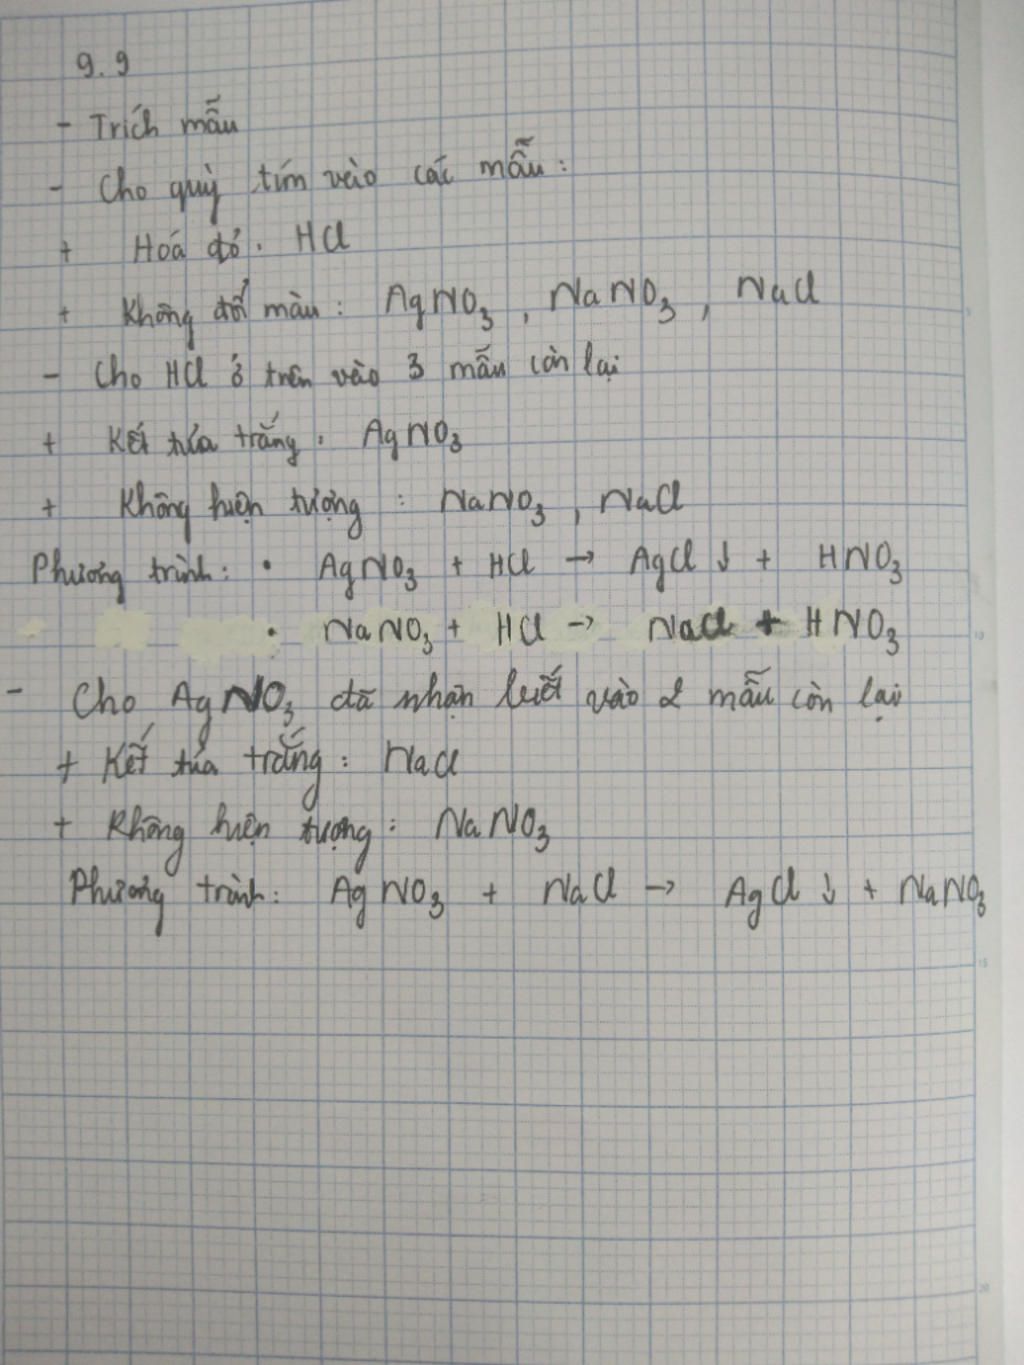 9.9
- Trích mẫu
- Cho quỳ tím vào các mẫu:
+ Hoá đỏ. HCl
+ Không đổi màu: AgNO3, NaNO3, NaCl
- Cho HCl ở trên vào 3 mẫu còn lại
+ Kết tủa trắng. AgNO3
+ Không hiện tượng: NaNO3, NaCl
Phương trình: • AgNO3 + HCl → AgCl ↓ + HNO3
• NaNO3 + HCl → NaCl + HNO3
- Cho AgNO3 đã nhận biết vào 2 mẫu còn lại
+ Kết tủa trắng: NaCl
+ Không hiện tượng: NaNO3
Phương trình: AgNO3 + NaCl → AgCl ↓ + NaNO3